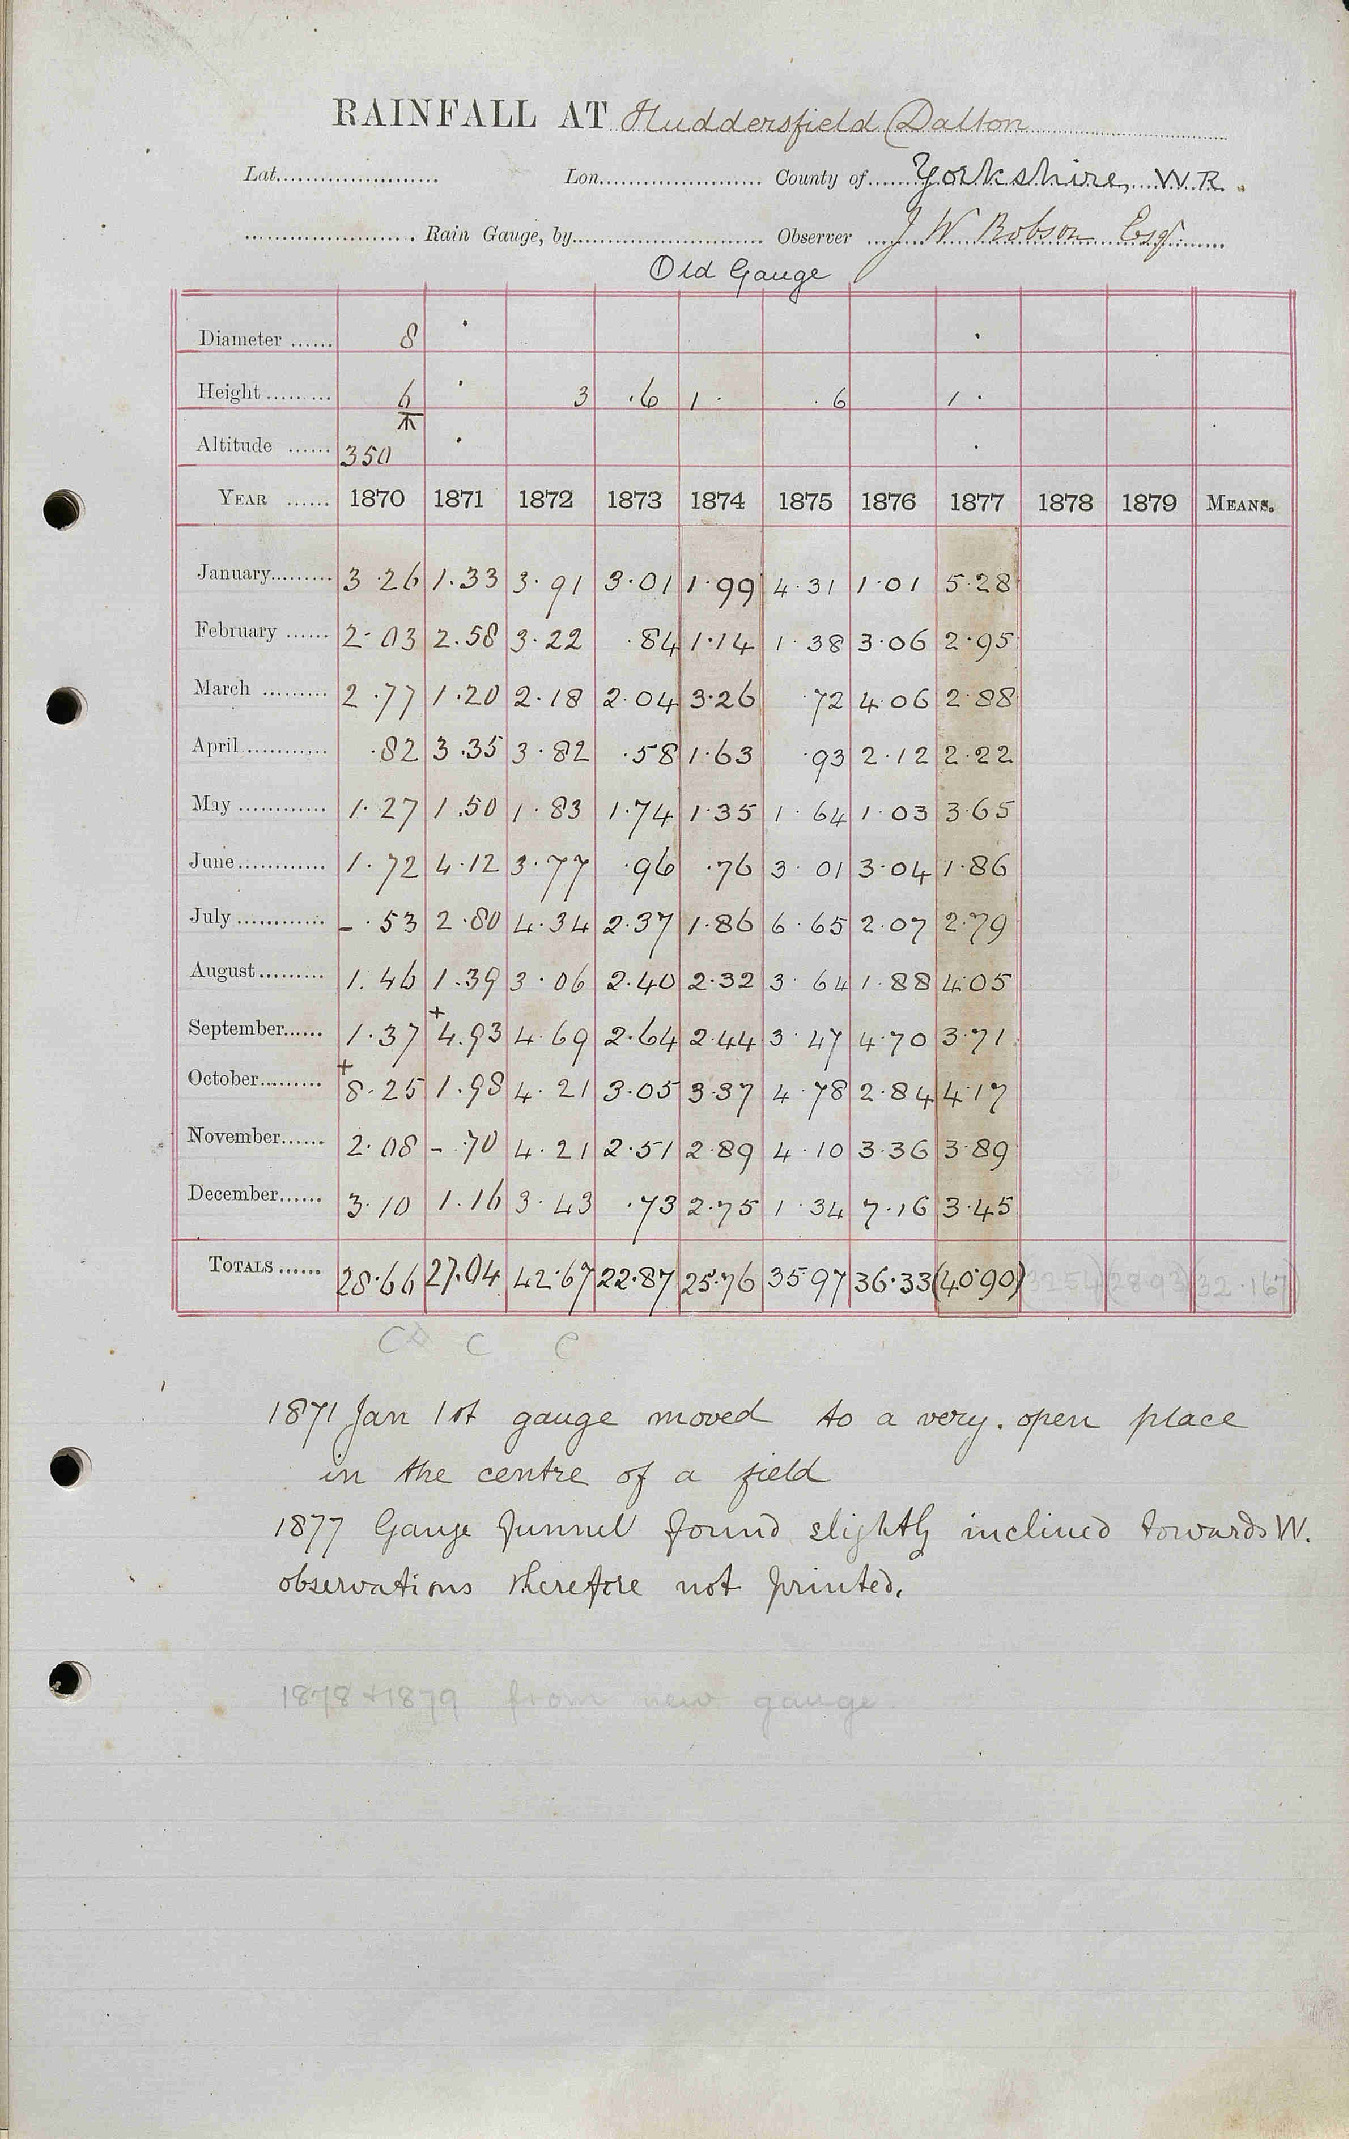 RAINFALL AT Huddersfield (Dalton
Lat. Lon. County of Yorkshire, W.R.
Rain Gauge, by Observer J W Robson Esq
Old Gauge
Diameter ...... 8
Height ......... 6 3 .6 1 . .6 1 .
Altitude ...... 350
YEAR ...... 1870 1871 1872 1873 1874 1875 1876 1877 1878 1879 MEANS.
January......... 3.26 1.33 3.91 3.01 1.99 4.31 1.01 5.28
February ...... 2.03 2.58 3.22 .84 1.14 1.38 3.06 2.95
March ......... 2.77 1.20 2.18 2.04 3.26 .72 4.06 2.88
April ............ .82 3.35 3.82 .58 1.63 .93 2.12 2.22
May ............ 1.27 1.50 1.83 1.74 1.35 1.64 1.03 3.65
June ............ 1.72 4.12 3.77 .96 .76 3.01 3.04 1.86
July ............ - .53 2.80 4.34 2.37 1.86 6.65 2.07 2.79
August ......... 1.46 1.39 3.06 2.40 2.32 3.64 1.88 4.05
September...... 1.37 +4.93 4.69 2.64 2.44 3.47 4.70 3.71
October......... +8.25 1.98 4.21 3.05 3.37 4.78 2.84 4.17
November...... 2.08 - .70 4.21 2.51 2.89 4.10 3.36 3.89
December...... 3.10 1.16 3.43 .73 2.75 1.34 7.16 3.45
TOTALS ...... 28.66 27.04 42.67 22.87 25.76 35.97 36.33 (40.90) (32.54) (28.93) (32.167)
C C C
1871 Jan 1st gauge moved to a very open place
in the centre of a field
1877 Gauge funnel found slightly inclined towards W.
observations therefore not printed.
1878 + 1879 from new gauge